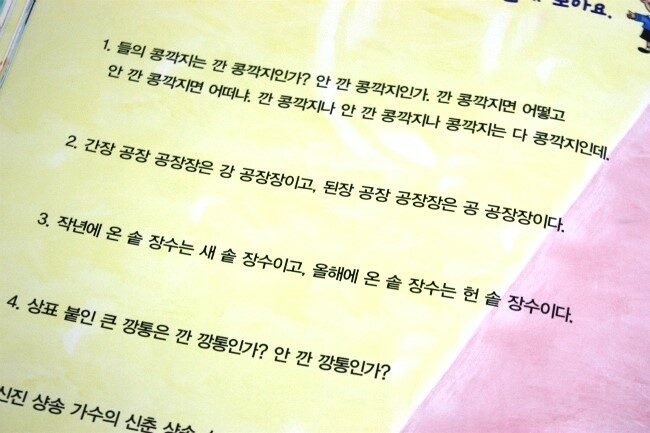 보아요.
1. 들의 콩깍지는 깐 콩깍지인가? 안 깐 콩깍지인가. 깐 콩깍지면 어떻고
안 깐 콩깍지면 어떠냐. 깐 콩깍지나 안 깐 콩깍지나 콩깍지는 다 콩깍지인데.
2. 간장 공장 공장장은 강 공장장이고, 된장 공장 공장장은 공 공장장이다.
3. 작년에 온 솥 장수는 새 솥 장수이고, 올해에 온 솥 장수는 헌 솥 장수이다.
4. 상표 붙인 큰 깡통은 깐 깡통인가? 안 깐 깡통인가?
신진 샹송 가수의 신춘 샹송